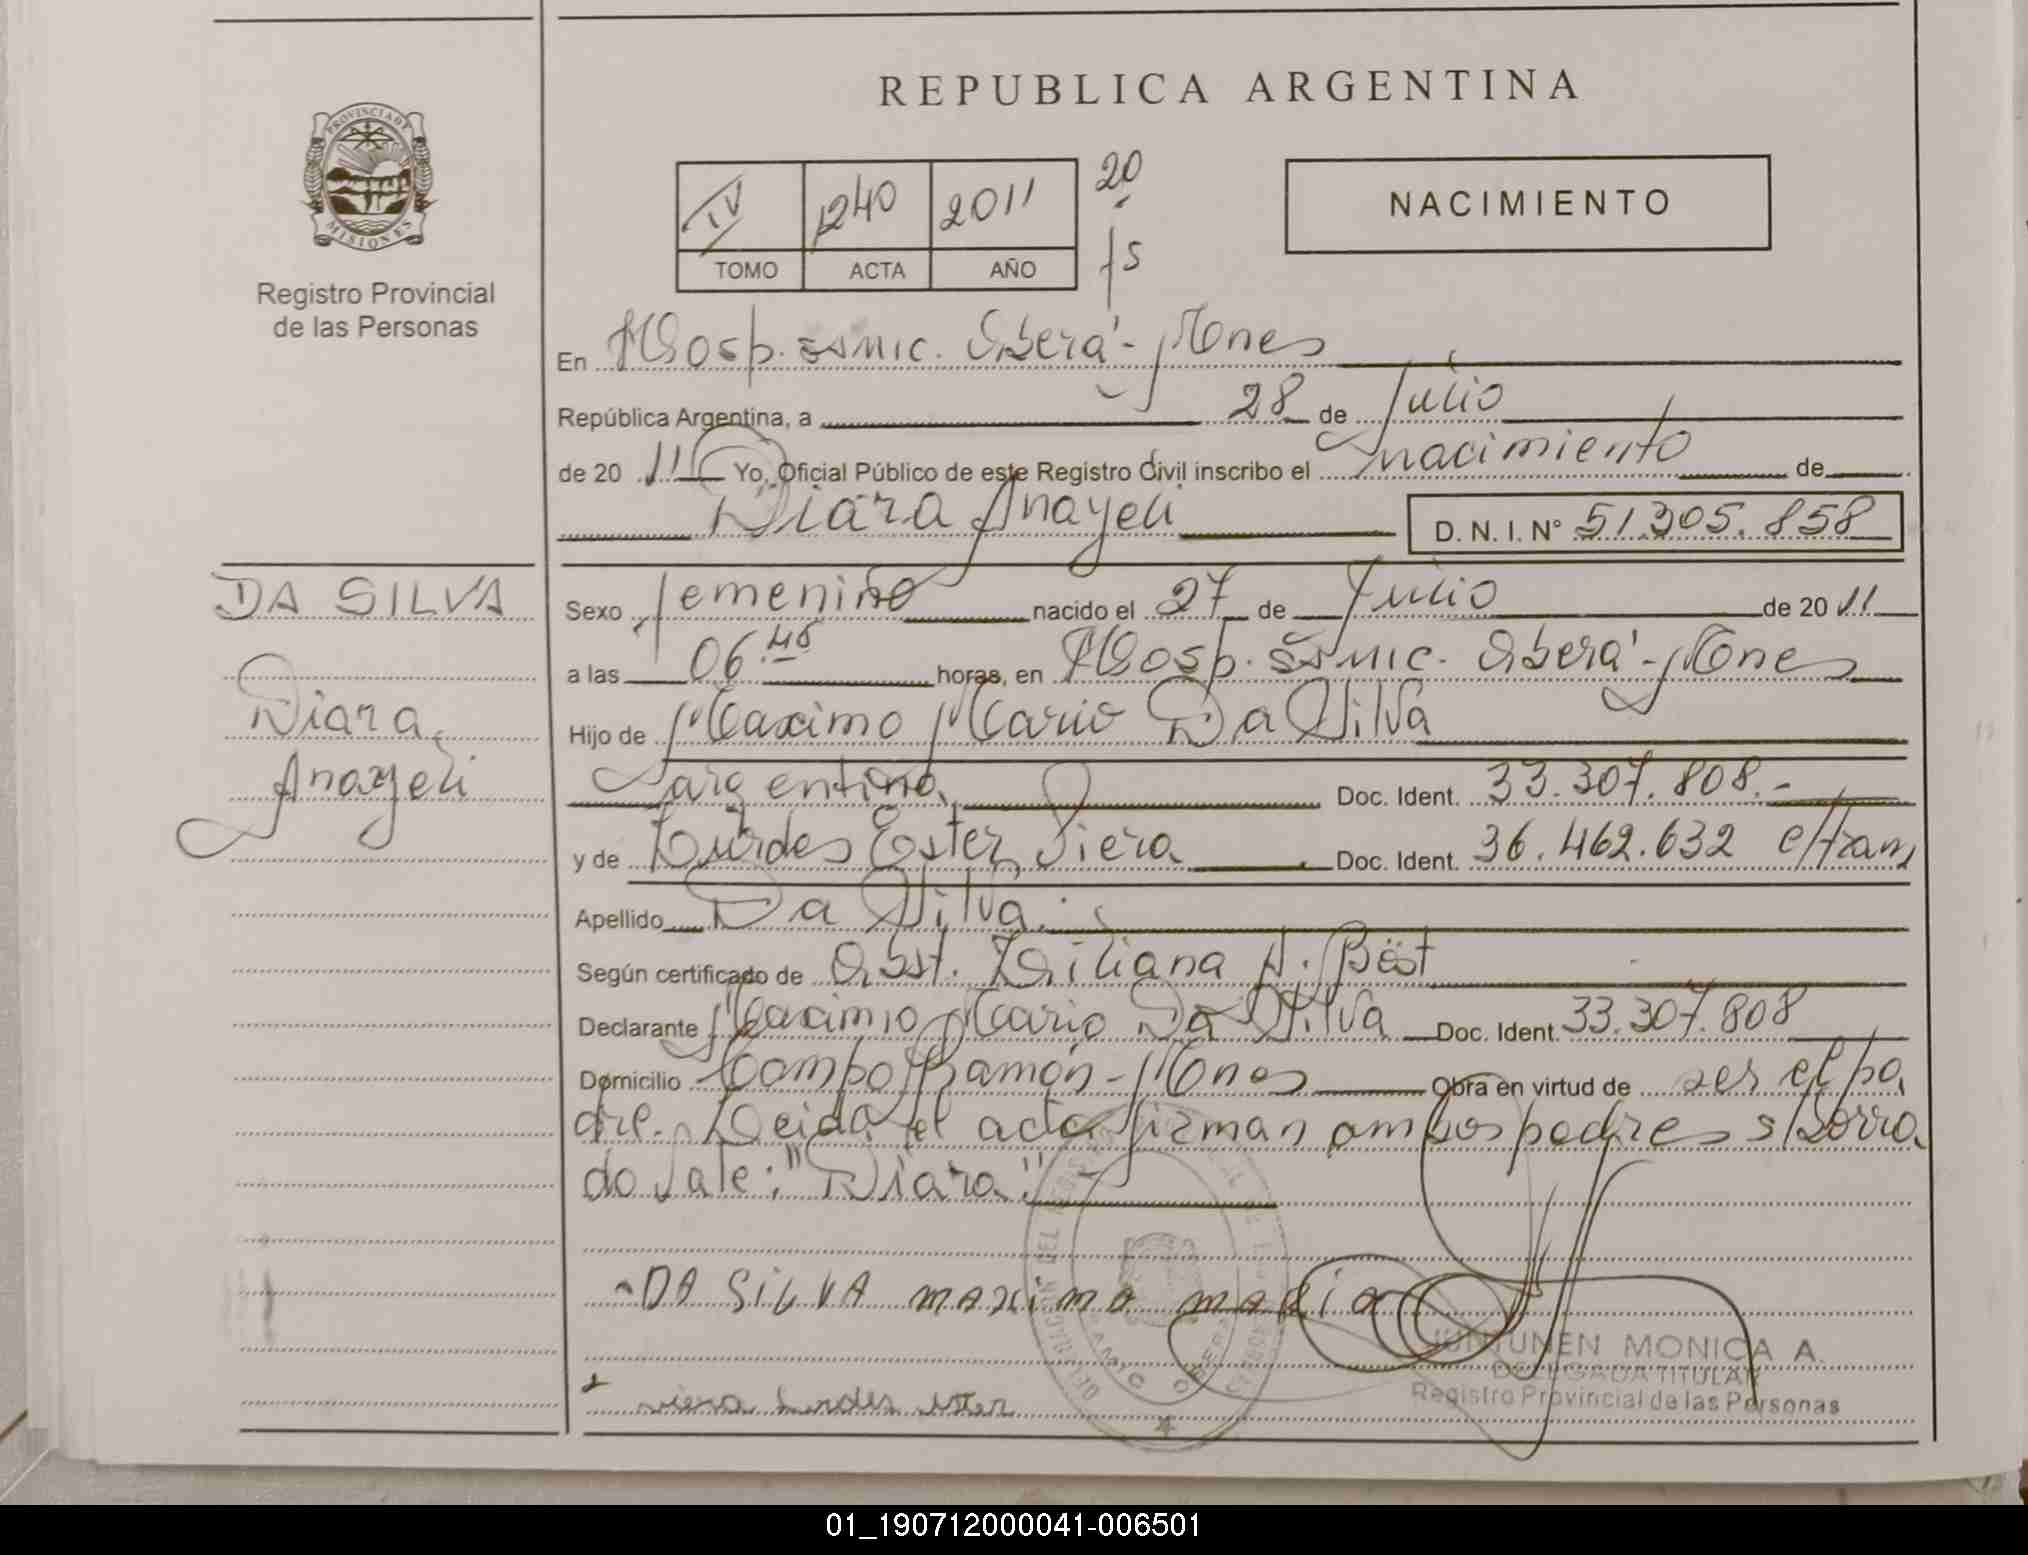 REPUBLICA ARGENTINA
PROVINCIA DE
MISIONES
Registro Provincial
de las Personas
IV 1240 2011 20
TOMO ACTA AÑO fs
NACIMIENTO
En Hosp. Oberá - Mnes
República Argentina, a 28 de Julio
de 20 11 Yo, Oficial Público de este Registro Civil inscribo el nacimiento de
Diara Anayeli D. N. I. N° 51.305.858
DA SILVA
Diara
Anayeli
Sexo femenino nacido el 27 de Julio de 20 11
a las 06.45 horas, en Hosp. Oberá - Mnes
Hijo de Maximo Mario Da Silva
argentino. Doc. Ident. 33.307.808.-
y de Lurdes Ester Viera Doc. Ident. 36.462.632 e/tram,
Apellido Da Silva.
Según certificado de Obst. Liliana A. Bëst
Declarante Maximo Mario Da Silva Doc. Ident. 33.307.808
Domicilio Campo Ramón - Mnes Obra en virtud de ser el pa
dre. Leida el acta firman ambos padres s/borra
do Vale: "Diara"
DA SILVA maximo mario
JUNTUNEN MONICA A.
DELEGADA TITULAR
Registro Provincial de las Personas
viera Lurdes ester
01_190712000041-006501